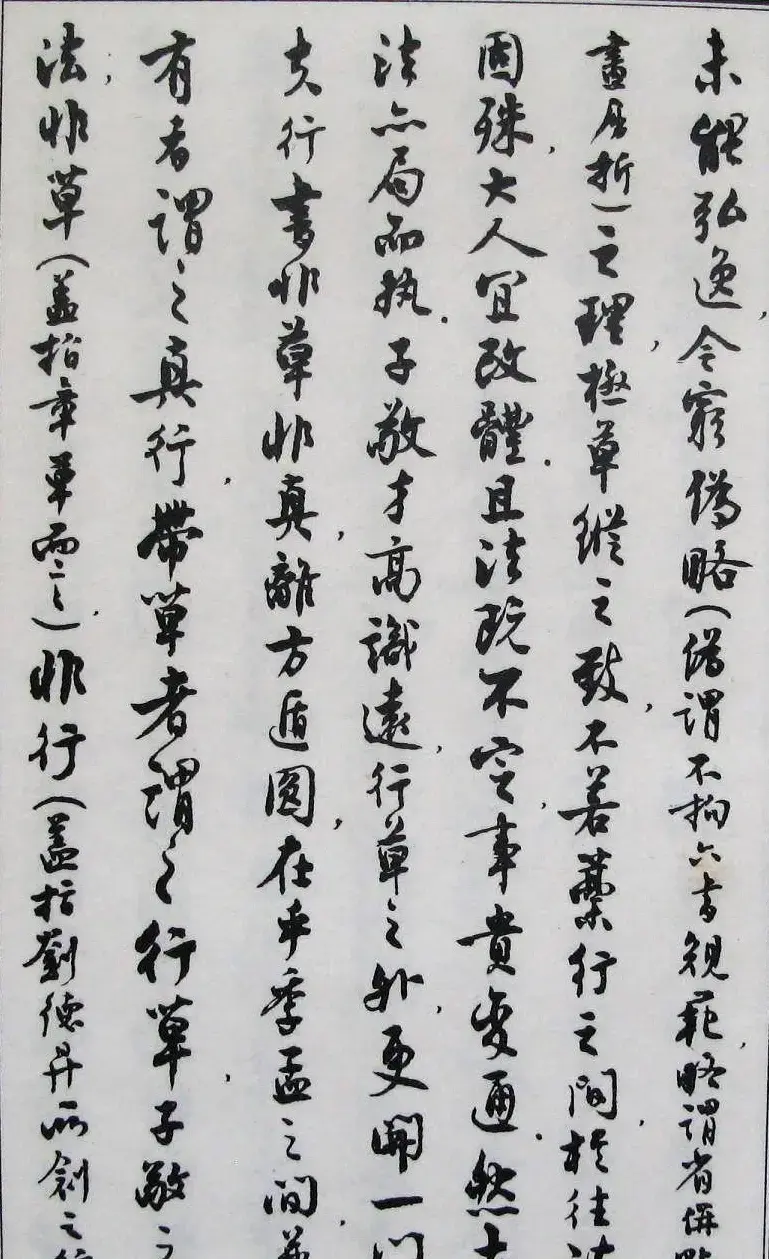 未能弘逸，今穷伪略（伪谓不拘六书规范，略谓省併
畫屈折）之理，極草縱之致，不若藁行之間，於往法
固殊，大人宜改體。且法既不定，事貴變通，然古
法亦局而执。子敬才高識遠，行草之外，更開一门
夫行書，非草非真，離方遁圆，在乎季孟之间，兼
有者，謂之真行，帶草者謂之行草，子敬之
法，非草（盖指章草而言），非行（盖指劉德昇所創之行